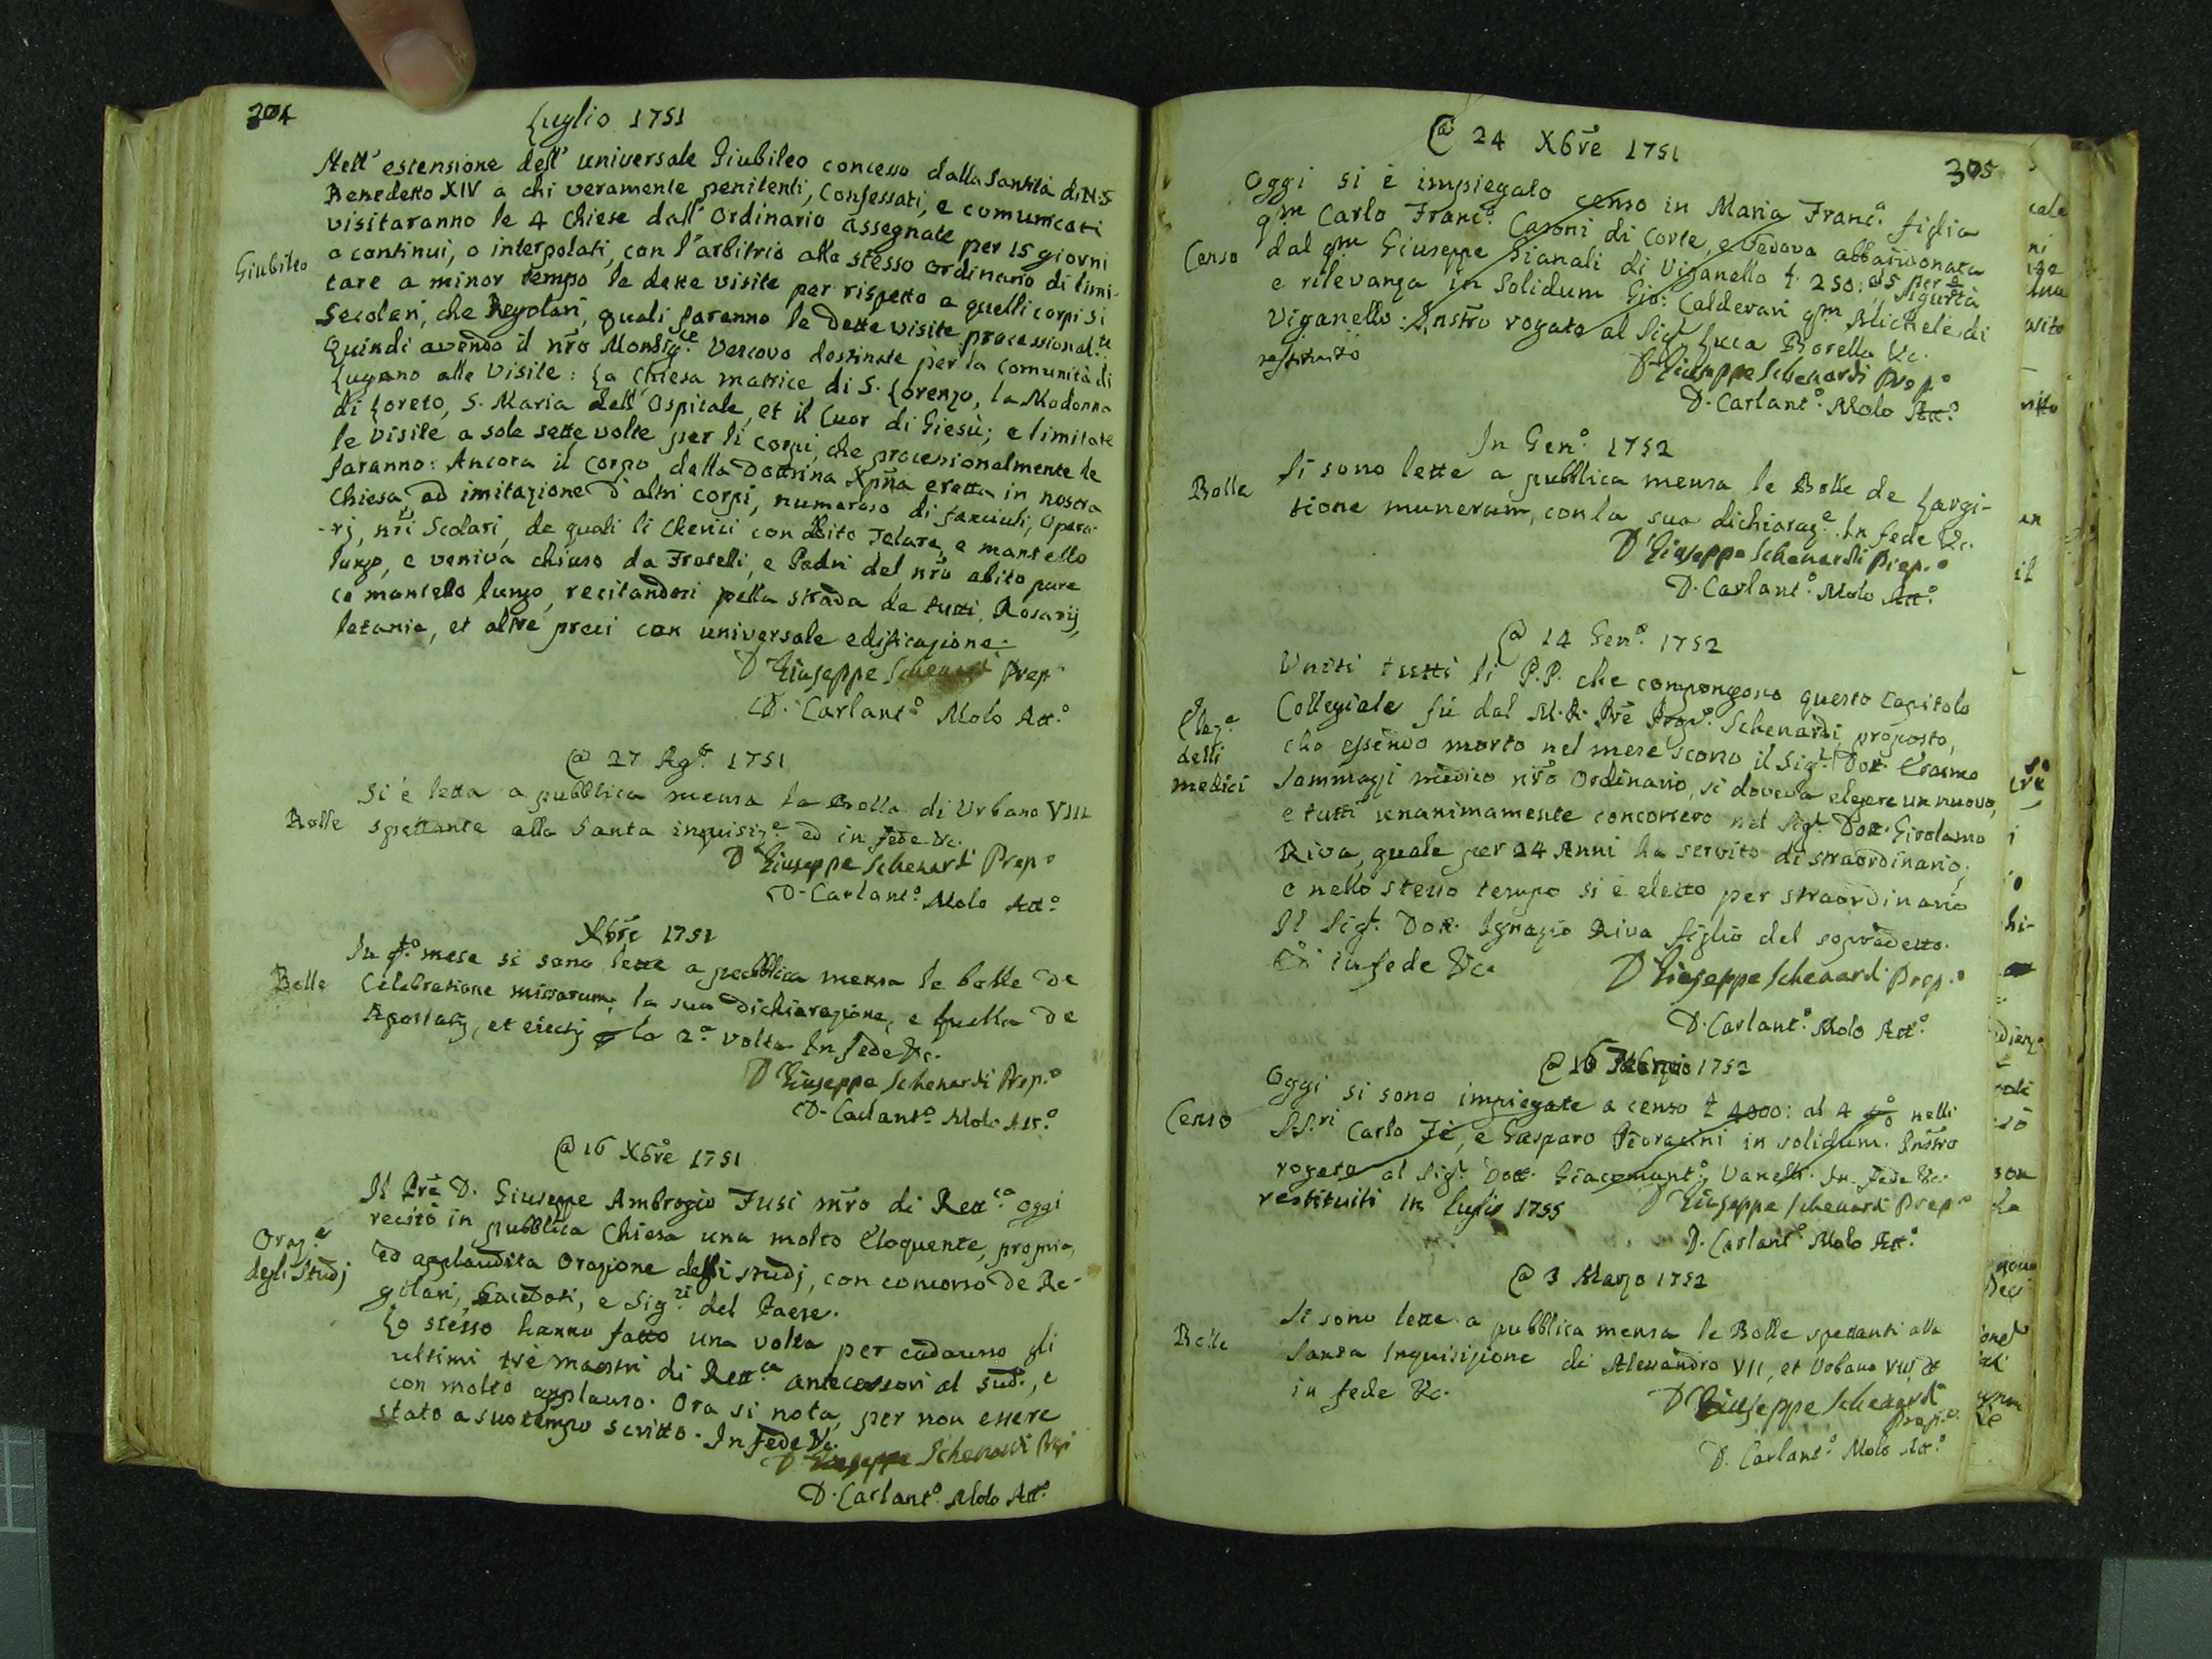 304
Luglio 1751
Nell' estensione dell' universale Giubileo concesso dalla Santità di N.S.
Benedetto XIV a chi veramente penitenti, Confessati, e comunicati
visitaranno le 4 Chiese dall' Ordinario assegnate per 15 giorni
Giubileo
o continui, o interpolati, con l'arbitrio allo stesso ordinario di limi-
tare a minor tempo le dette visite per rispetto a quelli corpi si
Secolari, che Regolari, quali faranno le dette visite processionalte.
Quindi avendo il nro Monsige. Vescovo destinate per la comunità di
Lugano alle Visite: La Chiesa matrice di S. Lorenzo, la Madonna
di Loreto, S. Maria dell' Ospitale, et il Cuor di Giesù; e limitate
le visite a sole sette volte per li corpi, che processionalmente le
faranno: Ancora il corpo della Dottrina Xpña eretta in nostra
Chiesa ad imitazione d'altri corpi, numeroso di fanciuli, Opera-
-rj, nri Scolari, de quali li Cherici con abito Telare, e mantello
lungo, e veniva chiuso da Fratelli, e Padri del nro abito pure
co mantello lungo, recitandosi pella strada da tutti, Rosarij,
letanie, et altre preci con universale edificazione.
D Giuseppe Schenardi Prepo
D. Carlanto. Molo Atto.
@ 27 Agto. 1751
Si è letta a pubblica mensa la Bolla di Urbano VIII
Bolle
spettante alla Santa inquisize. ed in fede &c.
D Giuseppe Schenardi Prepo
D. Carlanto. Molo Atto.
Xbre 1751
In qto. mese si sono lette a pubblica mensa le bolle De
Bolle
Celebratione missarum, la sua dichiarazione, e quella de
Apostatis, et eiectis p la 2a. volta In fede &c.
D Giuseppe Schenardi Prepo
D. Carlanto. Molo Atto.
@ 16 Xbre 1751
Il Pre D. Giuseppe Ambrogio Fusi mro di Rettca. oggi
Oraze.
degli Studj
recitò in pubblica Chiesa una molto Eloquente, propria,
ed applaudita Orazione delli studj, con concorso de Re-
golari, Sacerdoti, e Sigri. del Paese.
Lo stesso hanno fatto una volta per cadauno gli
ultimi trè maestri di Rettca. antecessori al sudo., e
con molto applauso. Ora si nota, per non essere
stato a suo tempo scritto. In fede &c.
D. Giuseppe Schenardi Prepo
D. Carlanto. Molo Atto.
305
@ 24 Xbre 1751
Oggi si è impiegato censo in Maria Franca. figlia
qm Carlo Franco. Casoni di Corte, e Vedova abbandonata
Censo
dal qm Giuseppe Gianali di Viganello £ 250: al 5 per o
e rilevanza in Solidum Gio: Calderari qm Michele di
Sigurtà
Viganello: Instro rogato al Sigr. Luca Borella &c.
restituito
D Giuseppe Schenardi Prepo
D. Carlanto. Molo Atto.
In Geno. 1752
Bolle
Si sono lette a pubblica mensa le Bolle de Largi-
tione munerum, con la sua dichiaraze. In fede &c.
D Giuseppe Schenardi Prepo.
D. Carlanto. Molo Atto.
@ 14 Geno. 1752
Uniti tutti li P.P. che compongono questo Capitolo
Eleze.
delli
medici
Collegiale fù dal M. R. Pre Prepo. Schenardi proposto,
che essendo morto nel mese scorso il Sigr. Dott. Erasmo
Sommazzi medico nro Ordinario, si doveva elegere un nuovo,
e tutti unanimamente concorsero nel Sigr. Dott. Girolamo
Riva, quale per 24 Anni ha servito di straordinario;
e nello stesso tempo si è eletto per straordinario
Il Sigr. Dott. Ignazio Riva figlio del sopradetto.
Ed in fede &c.
D Giuseppe Schenardi Prepo
D. Carlanto. Molo Atto.
@ 16 1752
Oggi si sono impiegate a censo £ 4000: al 4 p o nelli
Censo
S.S.ri Carlo Fè, e Gasparo Fioracini in solidum. Instro
rogato al Sigr. Dott. Giacomanto. Vanelli. In fede &c.
restituiti in luglio 1755
D Giuseppe Schenardi Prepo
D. Carlanto. Molo Atto.
@ 3 Marzo 1752
Si sono lette a pubblica mensa le Bolle spettanti alla
Bolle
Santa Inquisizione di Alessandro VII, et Urbano VIII, &
in fede &c.
D Giuseppe Schenardi
Prepo.
D. Carlanto. Molo Atto.